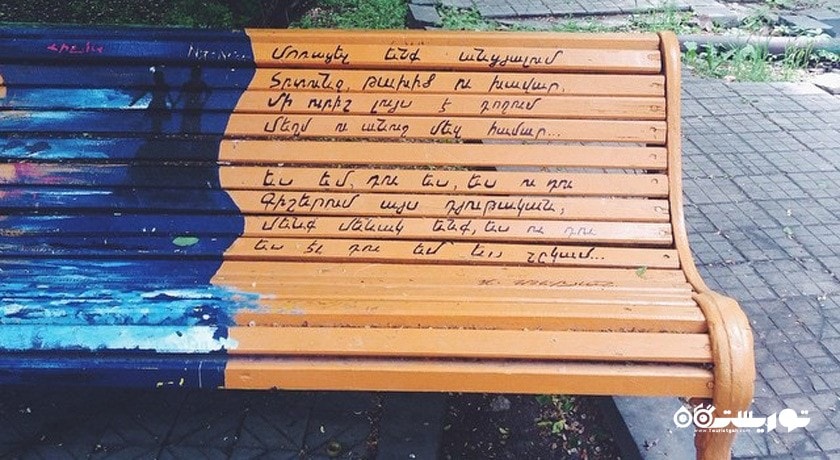 Մոռացել ենք անցյալում
Տրտունջ, թախիծ ու խավար,
Մի ուրիշ լույս է դողում
Մեղմ ու անուշ մեզ համար...
Ես եմ, դու ես, ես ու դու
Գիշերում այս դյութական,
Մենք մենակ ենք, ես ու դու
Ես էլ դու եմ ես չկամ...
توریستگاه
www.Touristgah.com